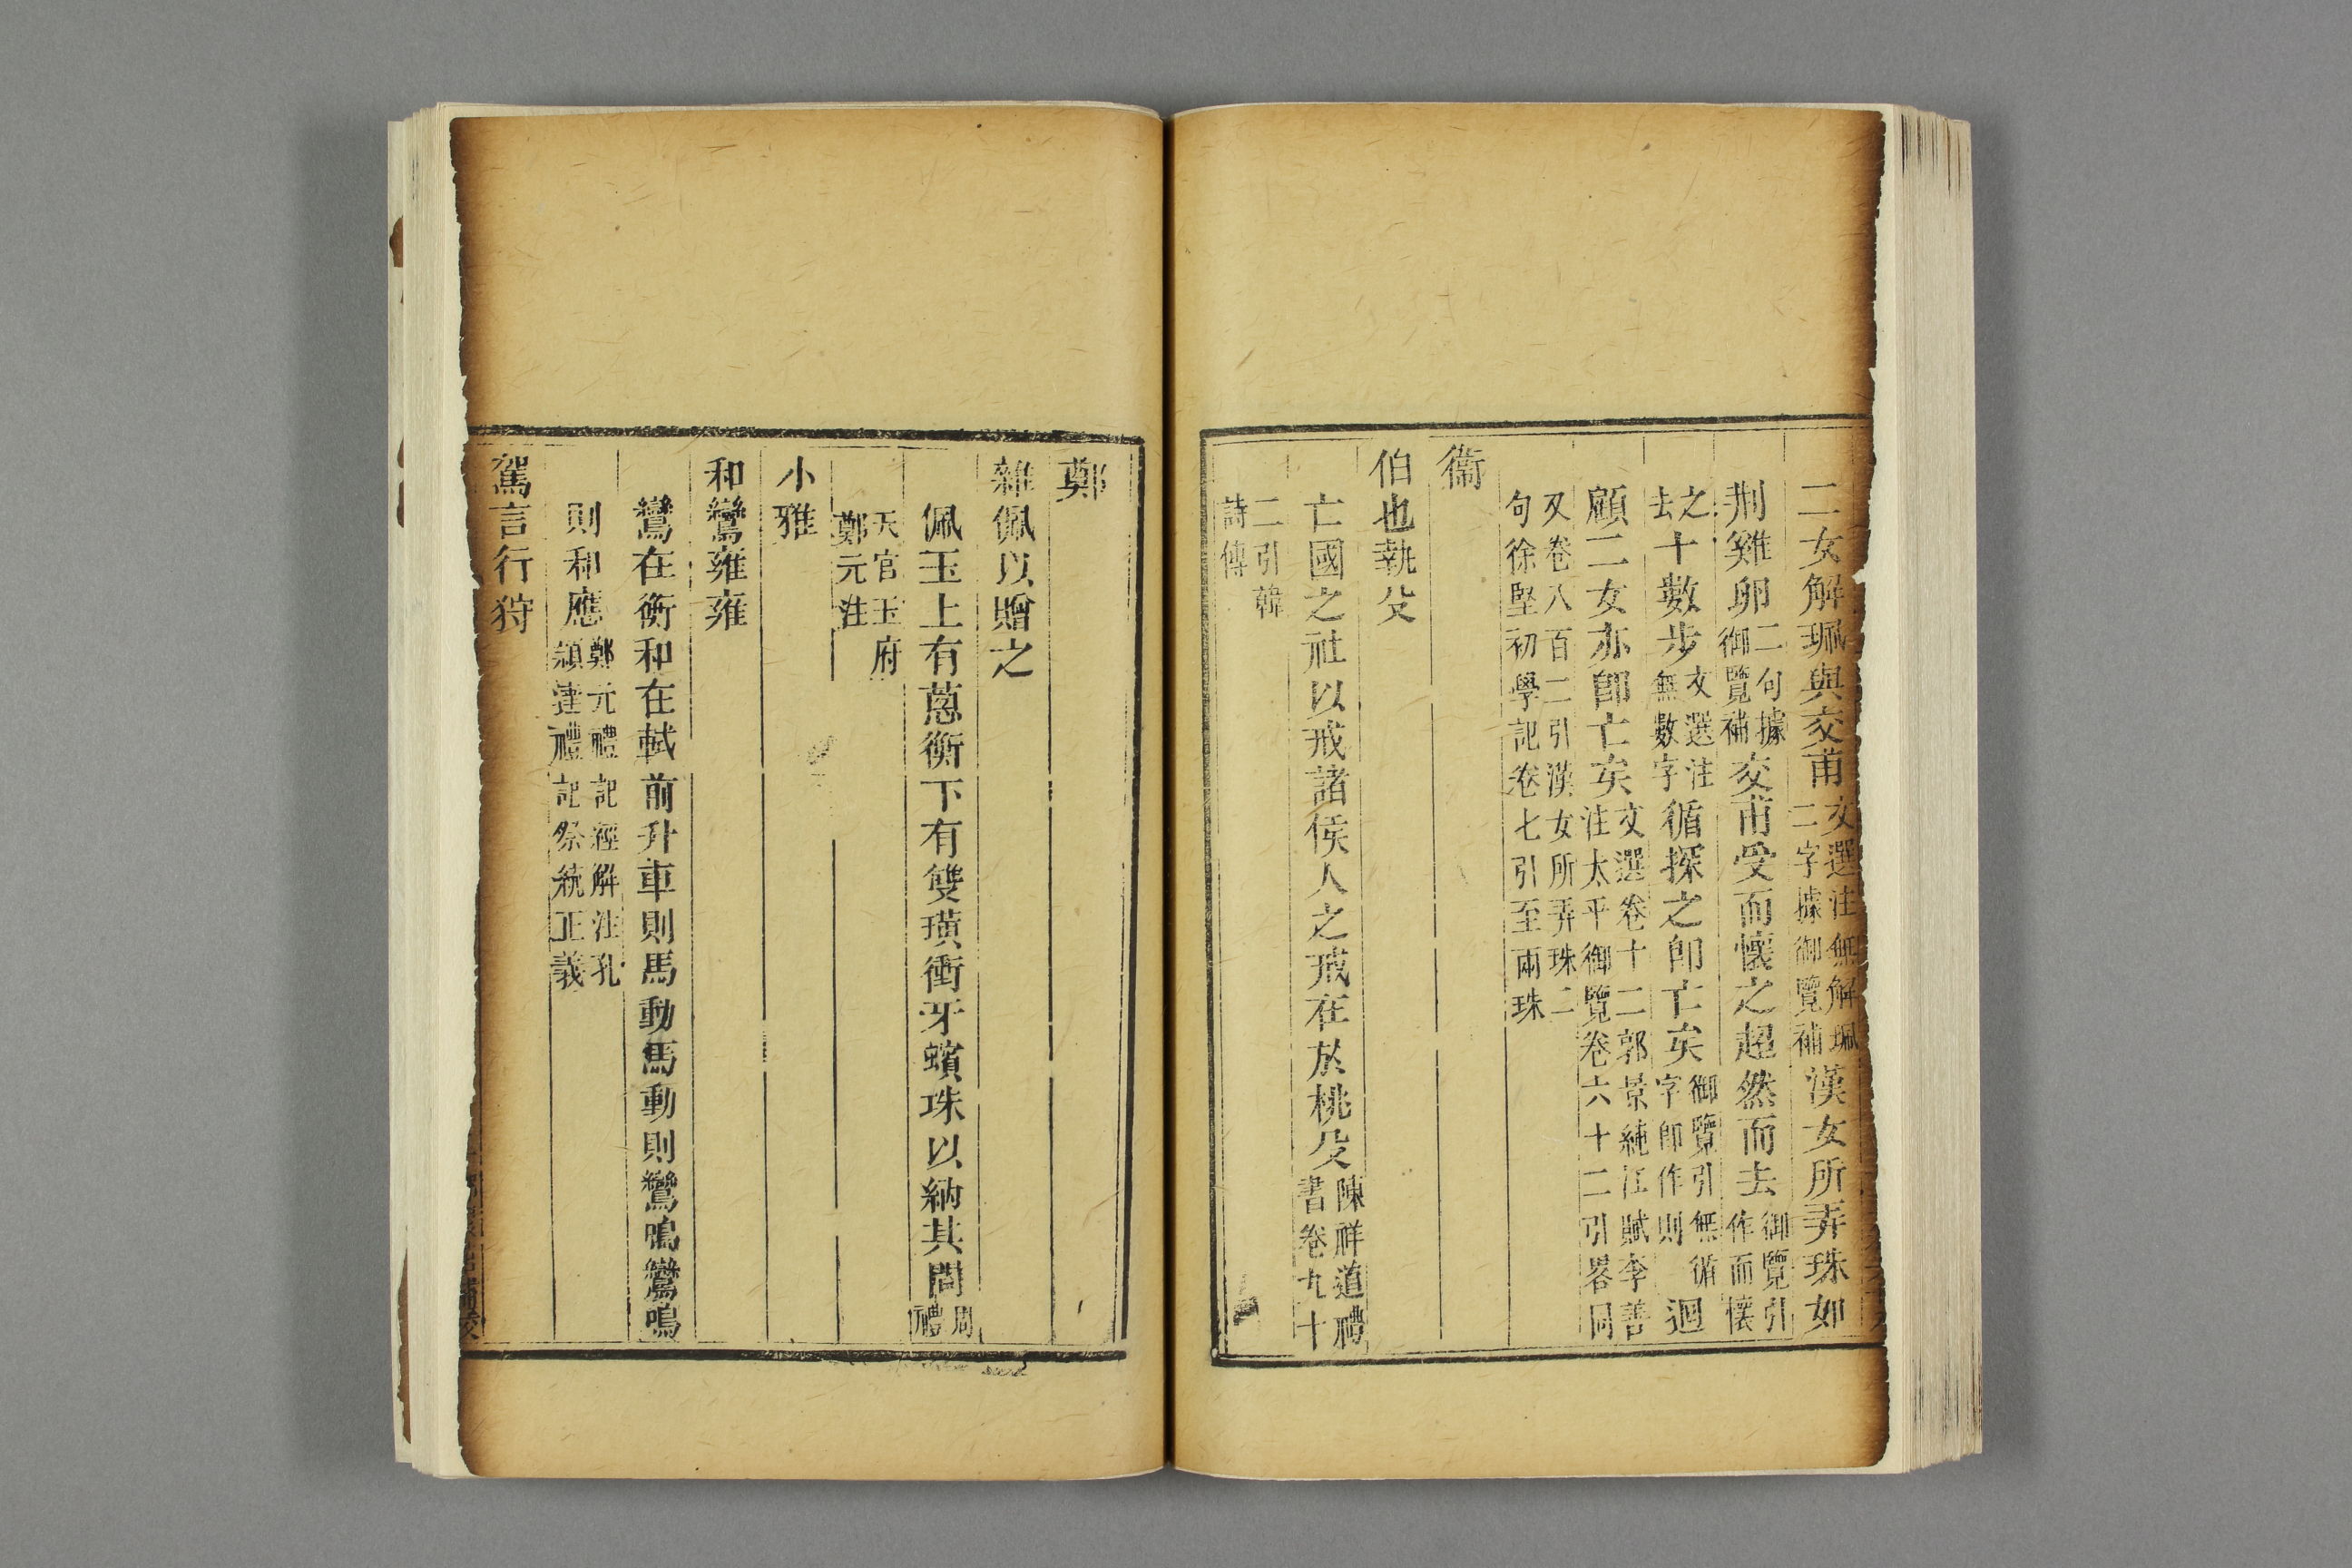 二女解珮與交甫文選注無解珮二字據御覽補漢女所弄珠如
荆雞卵二句據御覽補交甫受而懷之超然而去御覽引作而懷
之去十數步文選注無數字循探之卽亡矣御覽引無循字卽作則迴
顧二女亦卽亡矣文選卷十二郭景純江賦李善注太平御覽卷六十二引畧同
又卷八百二引漢女所弄珠二句徐堅初學記卷七引至兩珠
衞
伯也執殳
亡國之社以戒諸侯人之戒在於桃殳陳祥道禮書卷九十
二引韓詩傳
鄭
雜佩以贈之
佩玉上有蔥衡下有雙璜衝牙蠙珠以納其間周禮
天官玉府鄭元注
小雅
和鸞雍雍
鸞在衡和在軾前升車則馬動馬動則鸞鳴鸞鳴
則和應鄭元禮記經解注孔穎達禮記祭統正義
駕言行狩